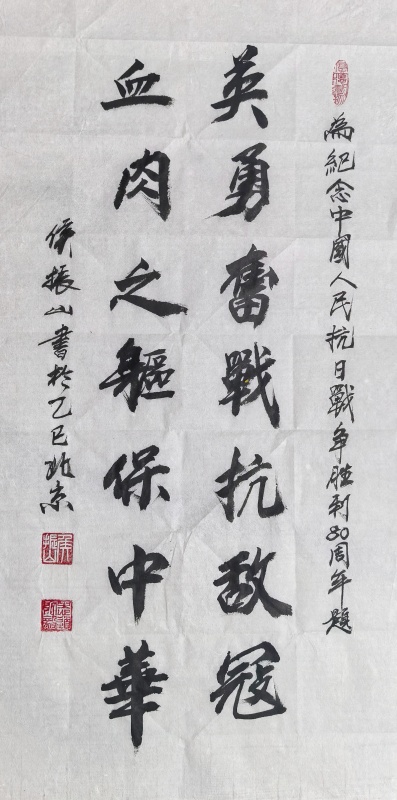 為紀念中國人民抗日戰争胜利80周年題
英勇奮戰抗敌寇
血肉之軀保中華
侯振山書於乙巳北京